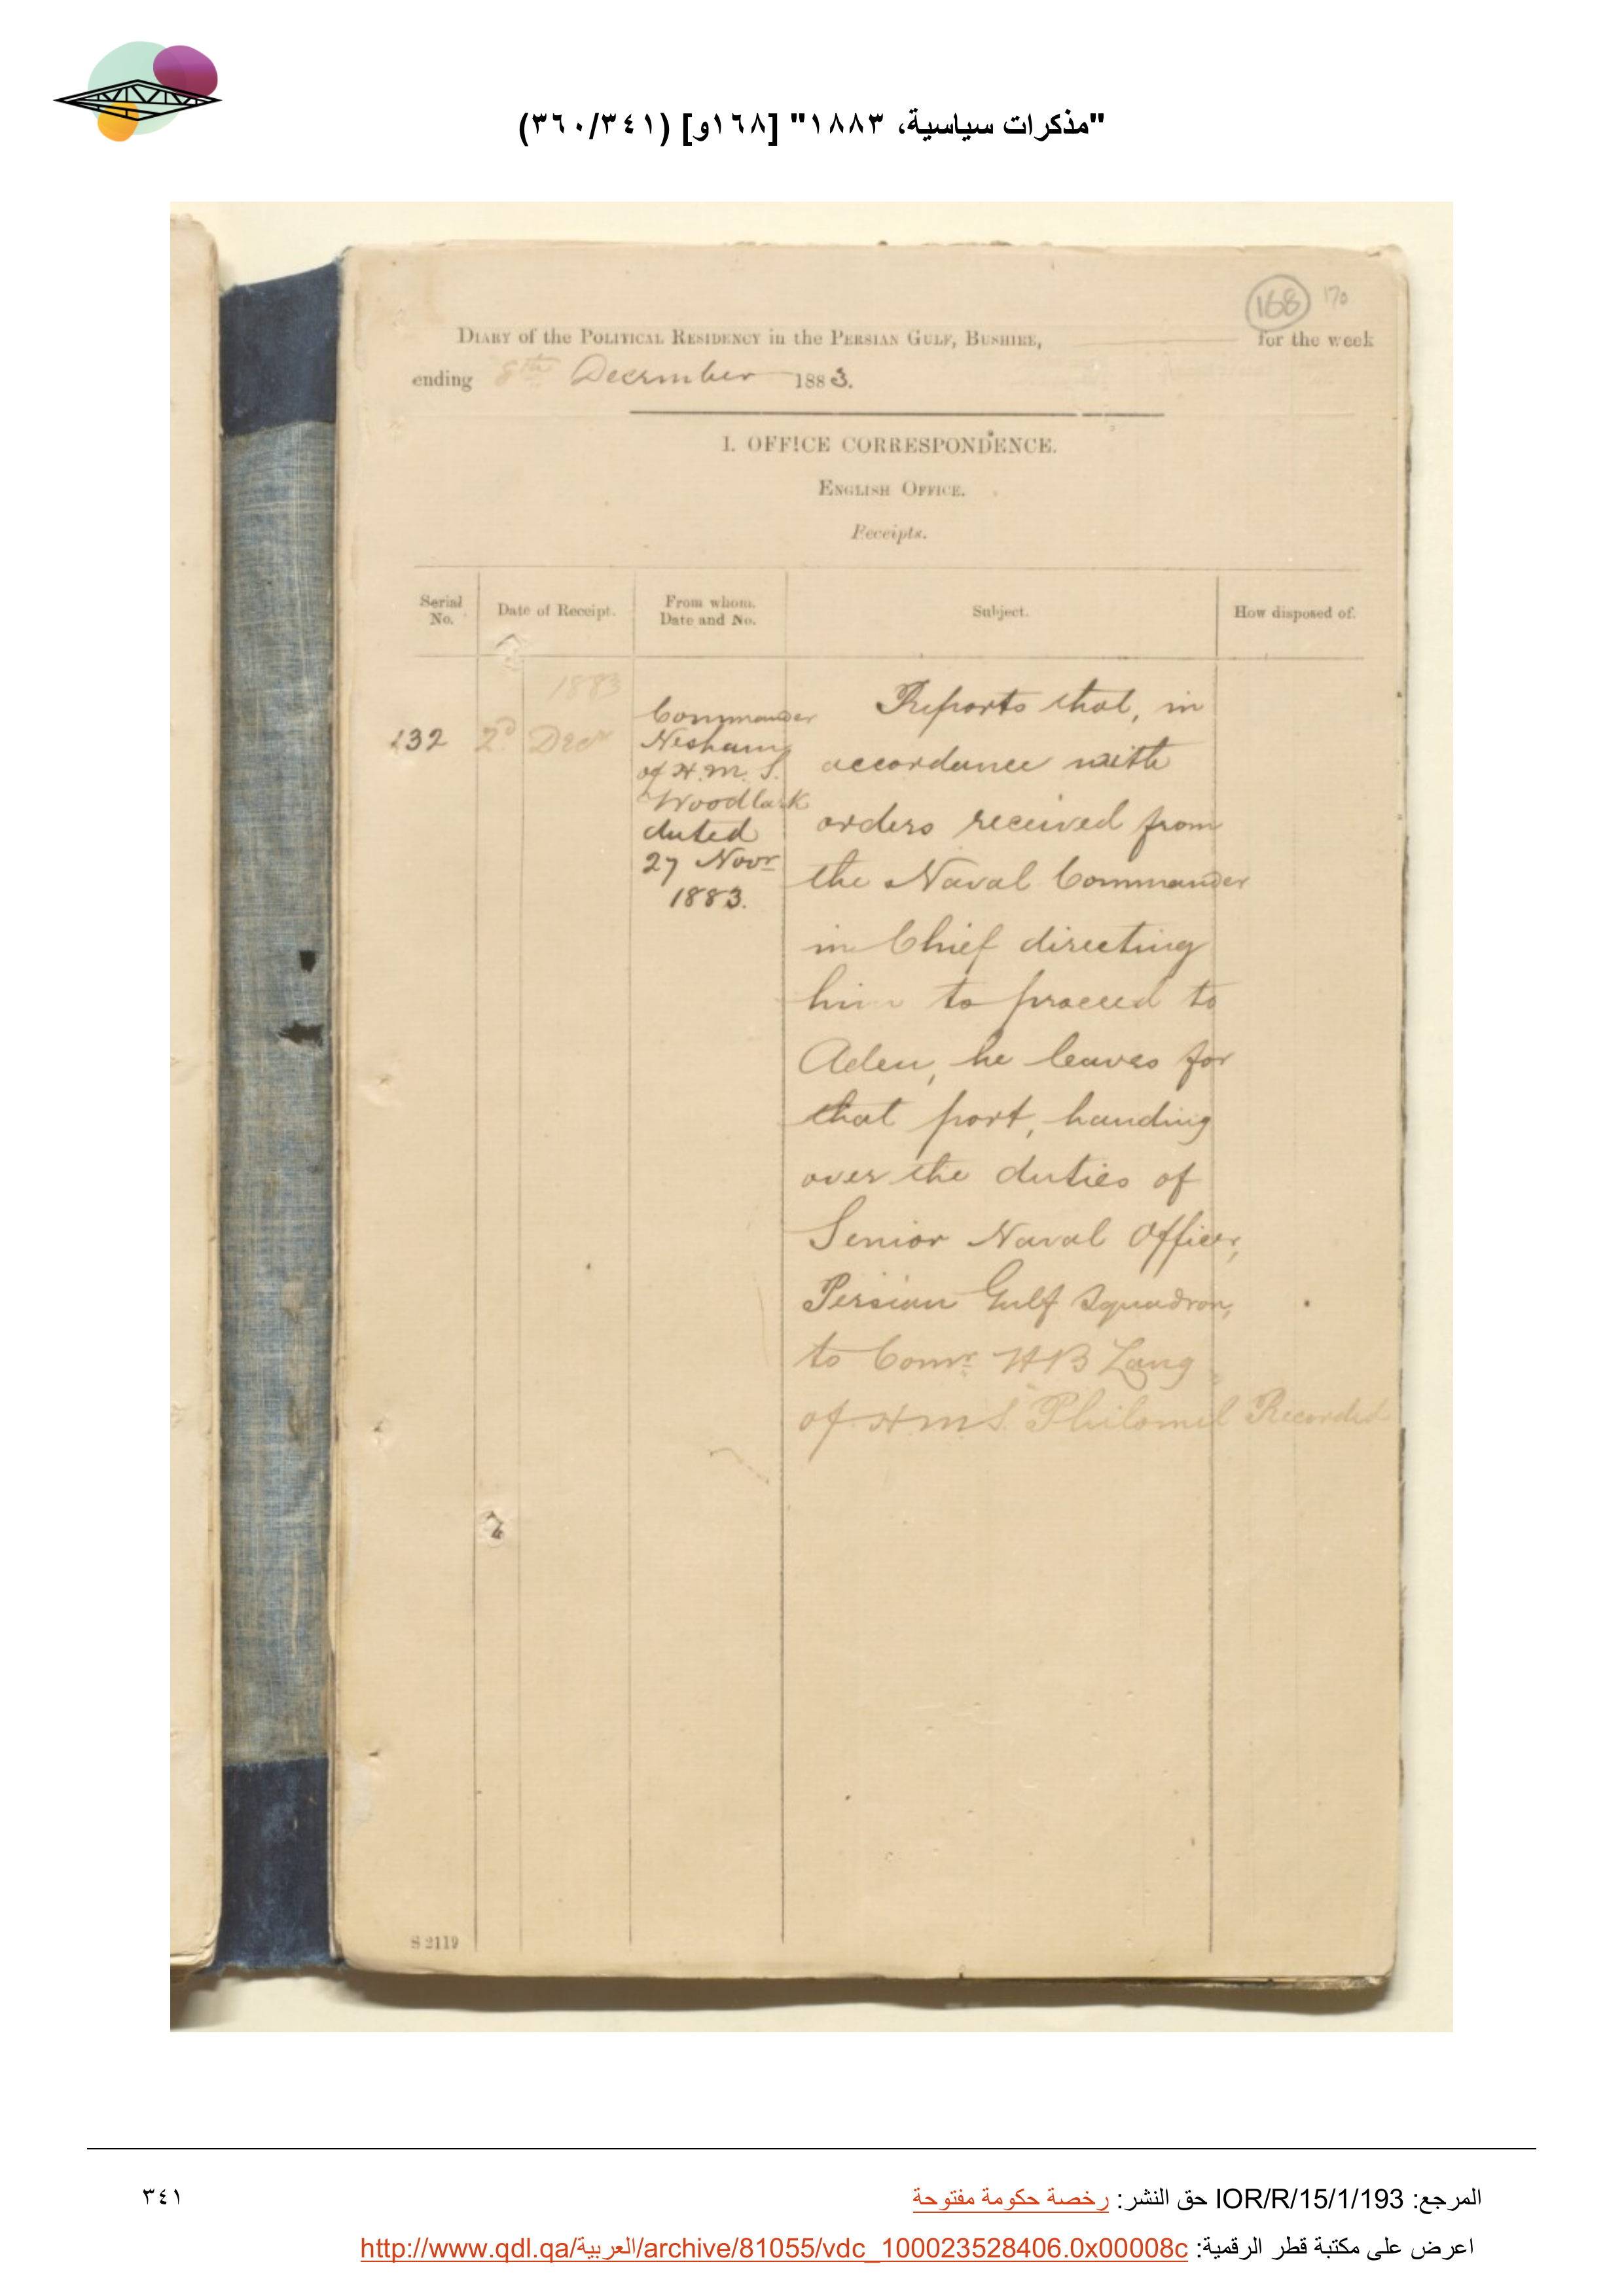 "مذكرات سياسية، ١٨٨٣" [١٦٨و] (٣٤١/٣٦٠)
168 170
DIARY of the POLITICAL RESIDENCY in the PERSIAN GULF, BUSHIRE, for the week
ending 8th December 1883.
I. OFFICE CORRESPONDENCE.
ENGLISH OFFICE.
Receipts.
Serial No.
Date of Receipt.
From whom. Date and No.
Subject.
How disposed of.
1883
132 2d Decr
Commander
Nesham
of H.M.S.
Woodlark
dated
27 Novr
1883.
Reports that, in
accordance with
orders received from
the Naval Commander
in Chief directing
him to proceed to
Aden, he leaves for
that port, handing
over the duties of
Senior Naval Officer,
Persian Gulf Squadron,
to Comr. HB Lang
of H.M.S. Philomel Recorded
S 2119
المرجع: IOR/R/15/1/193 حق النشر: رخصة حكومة مفتوحة
٣٤١
اعرض على مكتبة قطر الرقمية: http://www.qdl.qa/العربية/archive/81055/vdc_100023528406.0x00008c